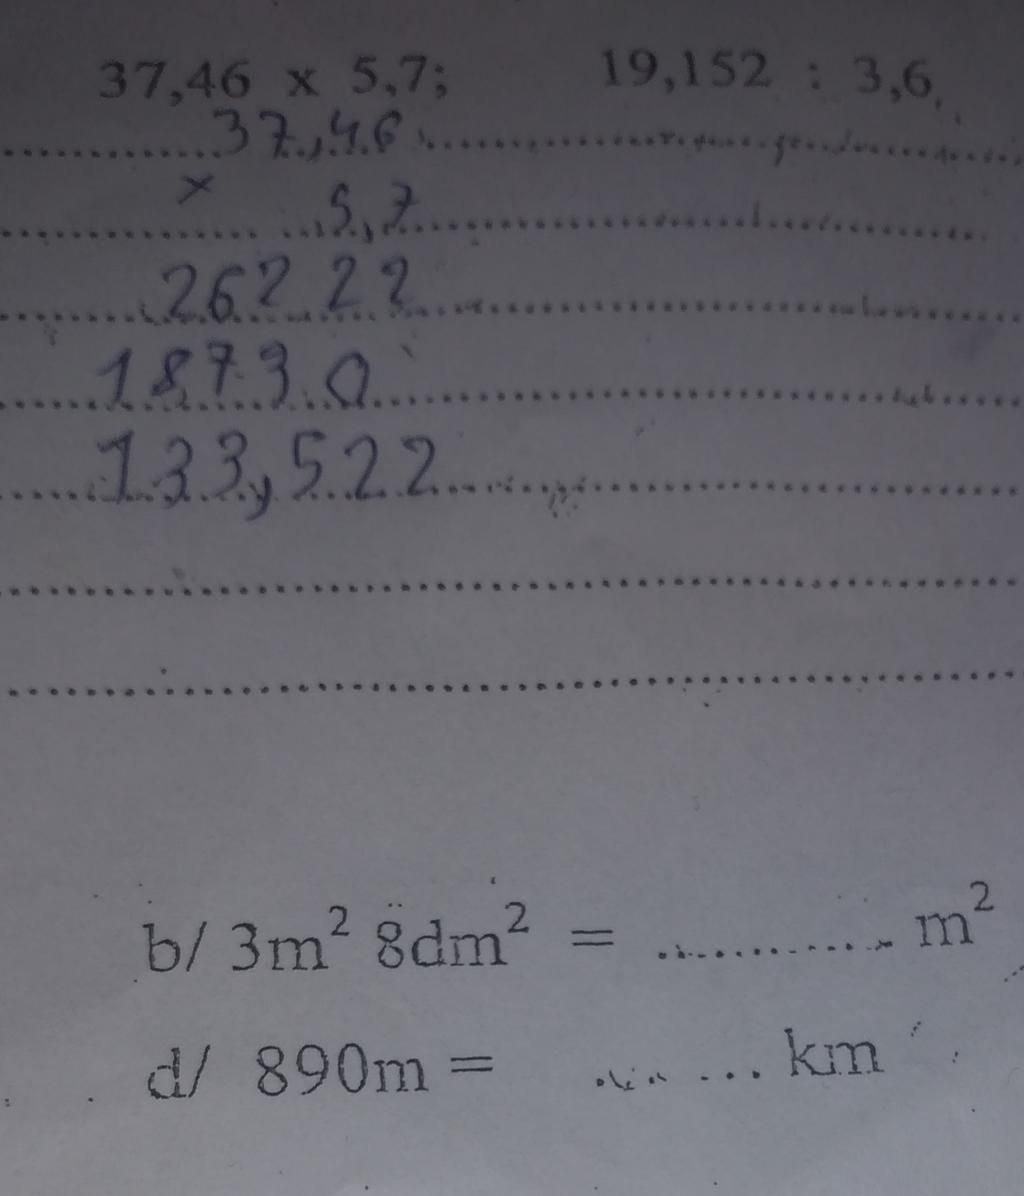 37,46 x 5,7; 19,152 : 3,6
37,46
x
5,7
26222
18730
133,522
b/ 3m² 8dm² = ............ m²
d/ 890m = ............ km